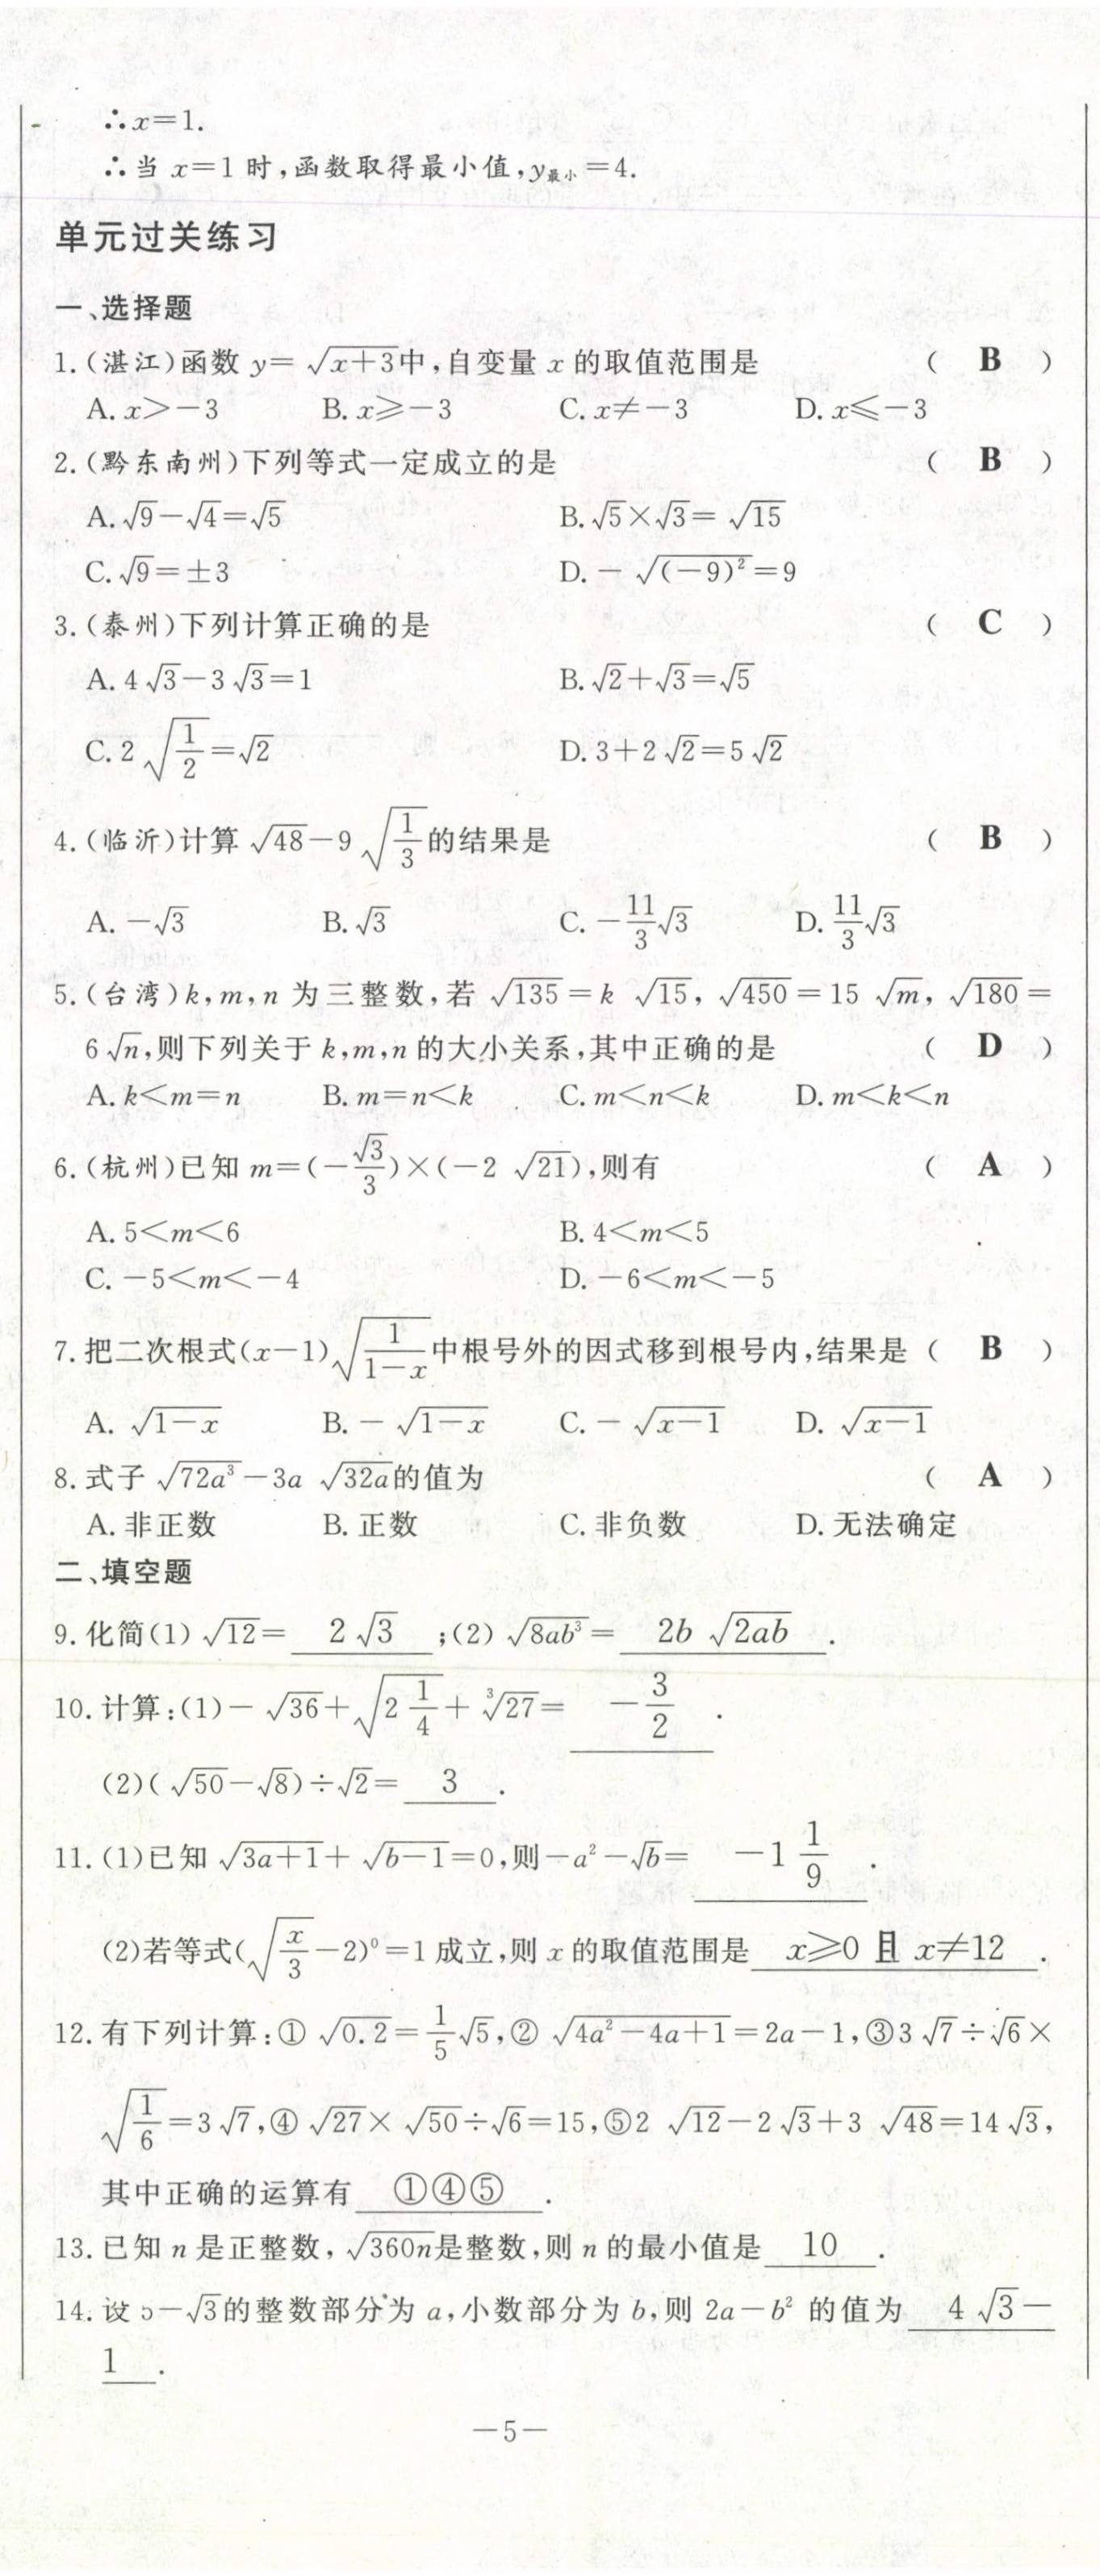 ∴x=1.
∴当 x=1 时,函数取得最小值,y最小=4.
单元过关练习
一、选择题
1.(湛江)函数 y=√(x+3)中,自变量 x 的取值范围是 ( B )
A. x>-3 B. x≥-3 C. x≠-3 D. x≤-3
2.(黔东南州)下列等式一定成立的是 ( B )
A. √9-√4=√5 B. √5×√3=√15
C. √9=±3 D. -√((-9)²)=9
3.(泰州)下列计算正确的是 ( C )
A. 4√3-3√3=1 B. √2+√3=√5
C. 2√(1/2)=√2 D. 3+2√2=5√2
4.(临沂)计算 √48-9√(1/3)的结果是 ( B )
A. -√3 B. √3 C. -11/3√3 D. 11/3√3
5.(台湾)k,m,n 为三整数,若 √135=k√15, √450=15√m, √180=
6√n,则下列关于 k,m,n 的大小关系,其中正确的是 ( D )
A. k<m=n B. m=n<k C. m<n<k D. m<k<n
6.(杭州)已知 m=(-√3/3)×(-2√21),则有 ( A )
A. 5<m<6 B. 4<m<5
C. -5<m<-4 D. -6<m<-5
7. 把二次根式(x-1)√(1/(1-x))中根号外的因式移到根号内,结果是 ( B )
A. √(1-x) B. -√(1-x) C. -√(x-1) D. √(x-1)
8. 式子 √(72a³)-3a√(32a)的值为 ( A )
A. 非正数 B. 正数 C. 非负数 D. 无法确定
二、填空题
9. 化简(1)√12= 2√3 ;(2)√(8ab³)= 2b√(2ab) .
10. 计算:(1)-√36+√(2 1/4)+∛27= -3/2 .
(2)(√50-√8)÷√2= 3 .
11.(1)已知 √(3a+1)+√(b-1)=0,则-a²-√b= -1 1/9 .
(2)若等式(√(x/3)-2)⁰=1 成立,则 x 的取值范围是 x≥0 且 x≠12 .
12. 有下列计算:①√0.2=1/5√5,②√(4a²-4a+1)=2a-1,③3√7÷√6×
√(1/6)=3√7,④√27×√50÷√6=15,⑤2√12-2√3+3√48=14√3,
其中正确的运算有 ①④⑤ .
13. 已知 n 是正整数,√(360n)是整数,则 n 的最小值是 10 .
14. 设 5-√3的整数部分为 a,小数部分为 b,则 2a-b² 的值为 4√3-
1 .
-5-